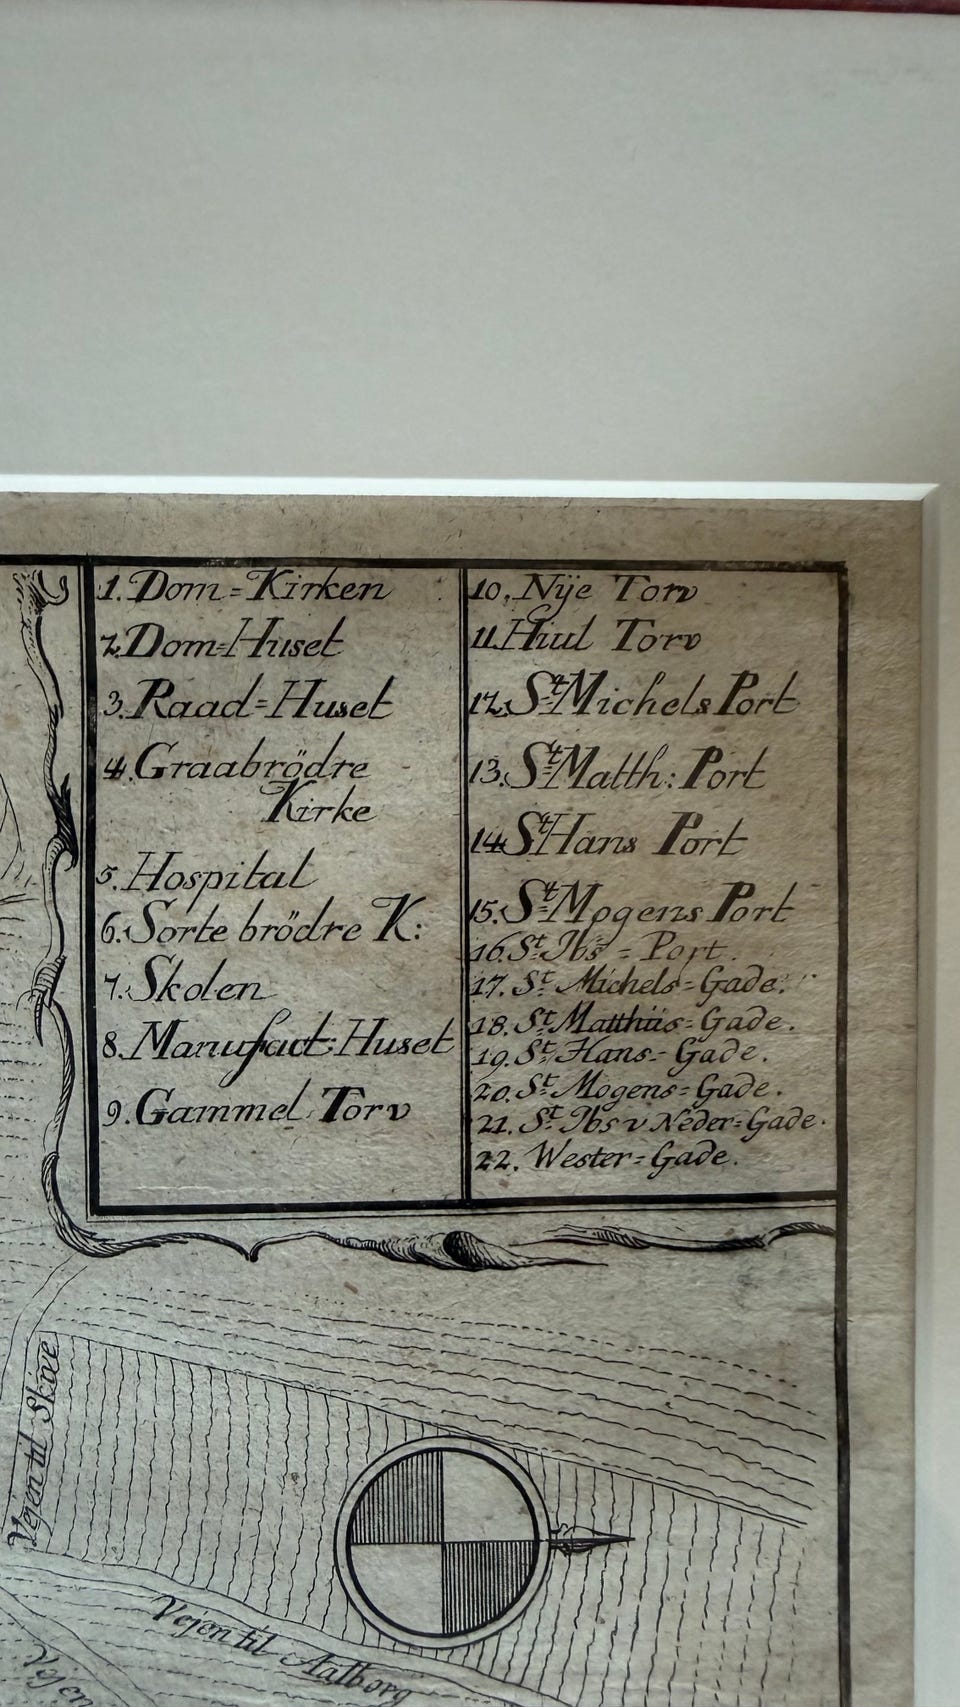 1. Dom=Kirken
2. Dom=Huset
3. Raad=Huset
4. Graabrödre
Kirke
5. Hospital
6. Sorte brödre K:
7. Skolen
8. Manufact: Huset
9. Gammel Torv
10. Nÿe Torv
11. Hiul Torv
12. St. Michels Port
13. St. Matth: Port
14. St. Hans Port
15. St. Mogens Port
16. St. Ibs = Port.
17. St. Michels=Gade.
18. St. Matthiis=Gade.
19. St. Hans=Gade.
20. St. Mogens=Gade.
21. St. Ibs v Neder=Gade.
22. Wester=Gade.
Vejen til Skive
Vejen til Aalborg
Vejen